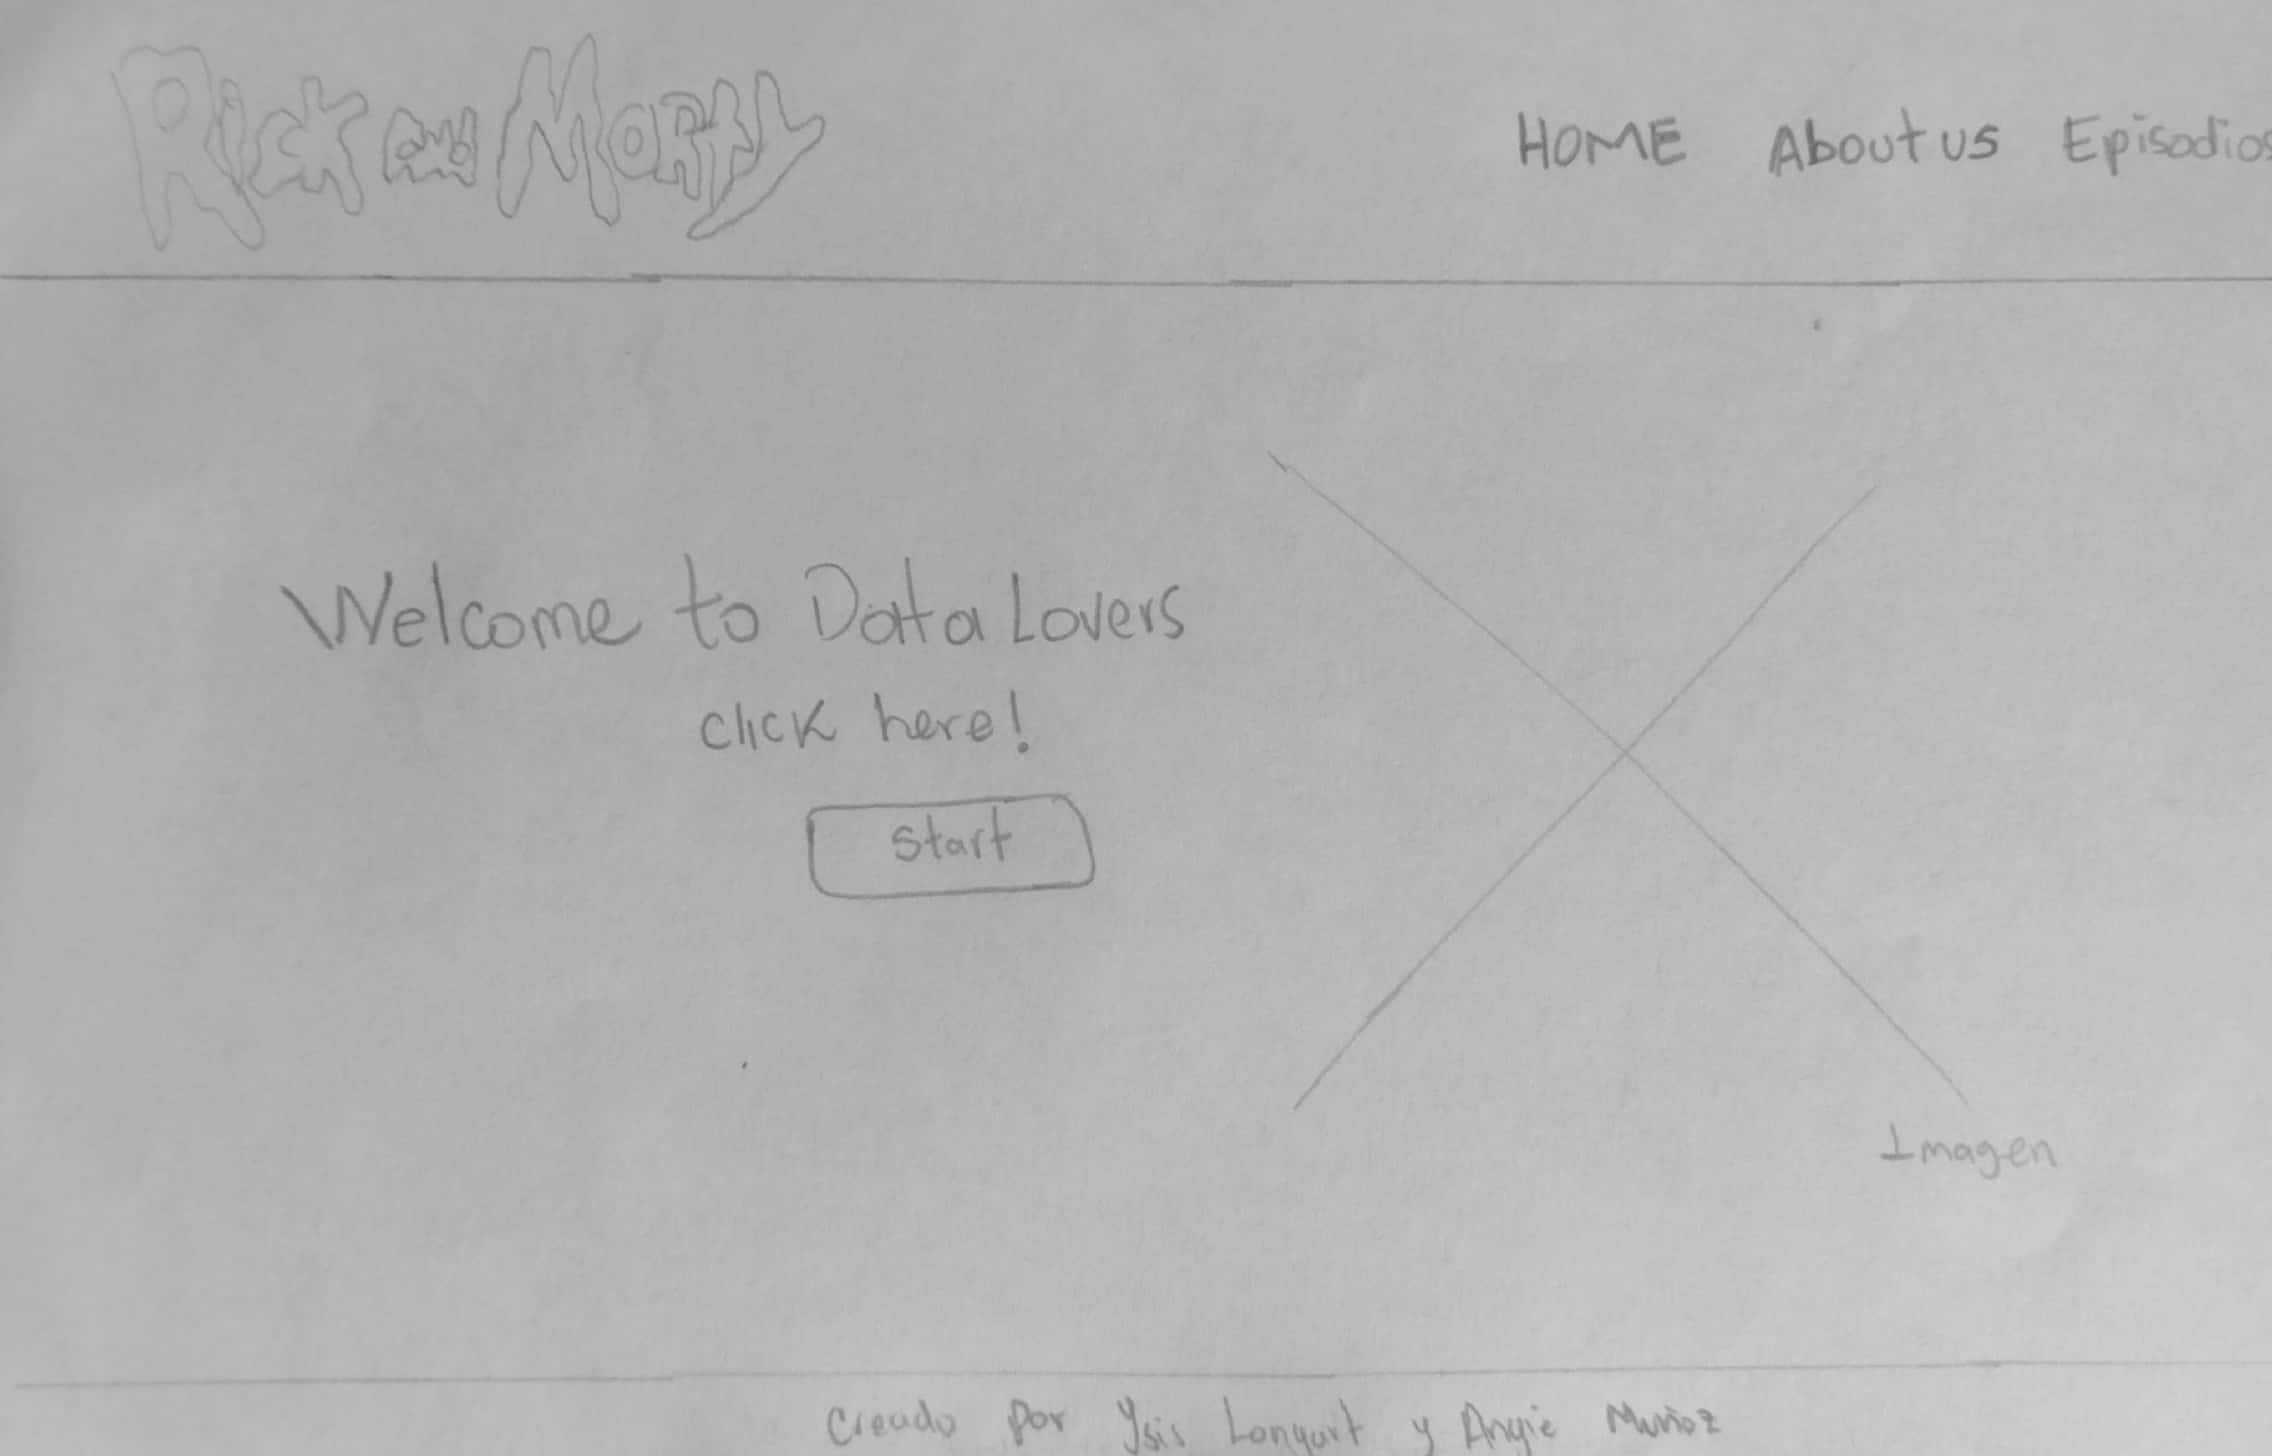 Rick and Morty
HOME About us Episodios
Welcome to Data Lovers
click here!
Start
Imagen
Creado por Ysis Longart y Angie Muñoz